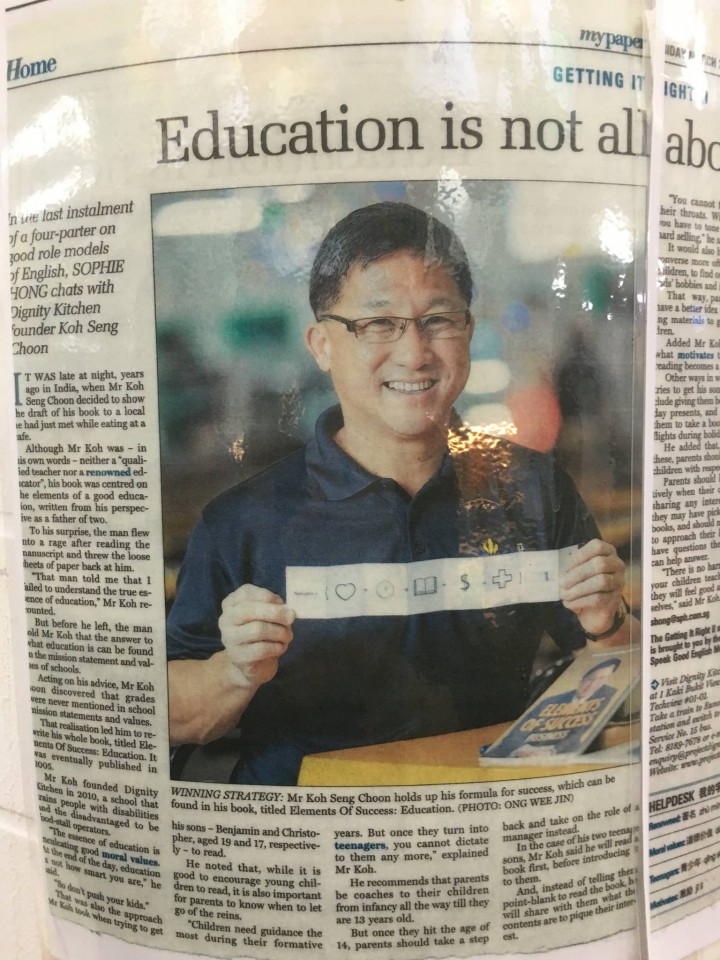 Home
mypaper
GETTING IT RIGHT
Education is not all abo
In the last instalment
of a four-parter on
good role models
of English, SOPHIE
HONG chats with
Dignity Kitchen
founder Koh Seng
Choon
IT WAS late at night, years
ago in India, when Mr Koh
Seng Choon decided to show
he draft of his book to a local
he had just met while eating at a
afe.
Although Mr Koh was – in
is own words – neither a "quali-
ied teacher nor a renowned ed-
cator", his book was centred on
he elements of a good educa-
ion, written from his perspec-
ive as a father of two.
To his surprise, the man flew
nto a rage after reading the
manuscript and threw the loose
heets of paper back at him.
"That man told me that I
ailed to understand the true es-
ence of education," Mr Koh re-
ounted.
But before he left, the man
old Mr Koh that the answer to
what education is can be found
n the mission statement and val-
es of schools.
Acting on his advice, Mr Koh
oon discovered that grades
were never mentioned in school
mission statements and values.
That realisation led him to re-
write his whole book, titled Ele-
ments Of Success: Education. It
was eventually published in
2005.
Mr Koh founded Dignity
Kitchen in 2010, a school that
rains people with disabilities
nd the disadvantaged to be
ood-stall operators.
"The essence of education is
nculcating good moral values.
t the end of the day, education
s not how smart you are," he
said.
"So don't push your kids."
That was also the approach
Mr Koh took when trying to get
$
ELEMENTS
OF SUCCESS
BUSINESS
WINNING STRATEGY: Mr Koh Seng Choon holds up his formula for success, which can be
found in his book, titled Elements Of Success: Education. (PHOTO: ONG WEE JIN)
his sons – Benjamin and Christo-
pher, aged 19 and 17, respective-
ly – to read.
He noted that, while it is
good to encourage young chil-
dren to read, it is also important
for parents to know when to let
go of the reins.
"Children need guidance the
most during their formative
years. But once they turn into
teenagers, you cannot dictate
to them any more," explained
Mr Koh.
He recommends that parents
be coaches to their children
from infancy all the way till they
are 13 years old.
But once they hit the age of
14, parents should take a step
back and take on the role of a
manager instead.
In the case of his two teenage
sons, Mr Koh said he will read a
book first, before introducing
to them.
And, instead of telling them
point-blank to read the book, h
will share with them what the
contents are to pique their inter-
est.
"You cannot
their throats. W
you have to tone
hard selling," he
It would also
converse more oft
children, to find o
ids' hobbies and
That way, pa
have a better idea
ing materials to
dren.
Added Mr Koh
what motivates t
reading becomes a
Other ways in w
tries to get his son
clude giving them b
day presents, and
them to take a boo
flights during holid
He added that,
these, parents shou
children with respe
Parents should
tively when their c
sharing any inter
they may have pick
books, and should n
to approach their
have questions the
can help answer.
"There is no har
your children teac
they will feel good a
selves," said Mr Koh
shong@sph.com.sg
The Getting It Right
is brought to you by th
Speak Good English M
Visit Dignity Kit
at 1 Kaki Bukit View
Techview #01-01.
Take a train to Euno
station and switch
Service No. 15 bus.
Tel: 8189-7678 or e-m
enquiry@projectdign
Website: www.project
HELPDESK 我的字
Renowned: 著名
Moral values: 道德价值
Teenagers: 青少年
Motivates: 激励